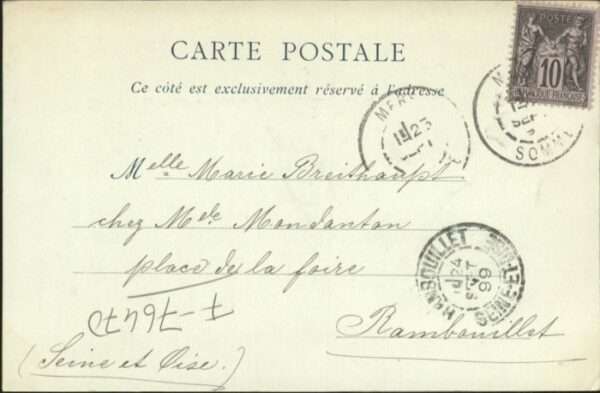 POSTE
10
RÉPUBLIQUE FRANÇAISE
CARTE POSTALE
Ce côté est exclusivement réservé à l'adresse
23
SEPT
SOMME
Melle Marie Breithaupt
chez Mde Mondanton
place de la foire
RAMBOUILLET
24
SEPT
99
SEINE-ET-OISE
Rambouillet
(Seine et Oise.)